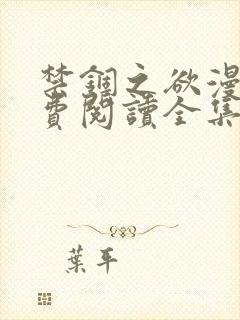 禁錮之欲漫
費閱讀全集
葉平